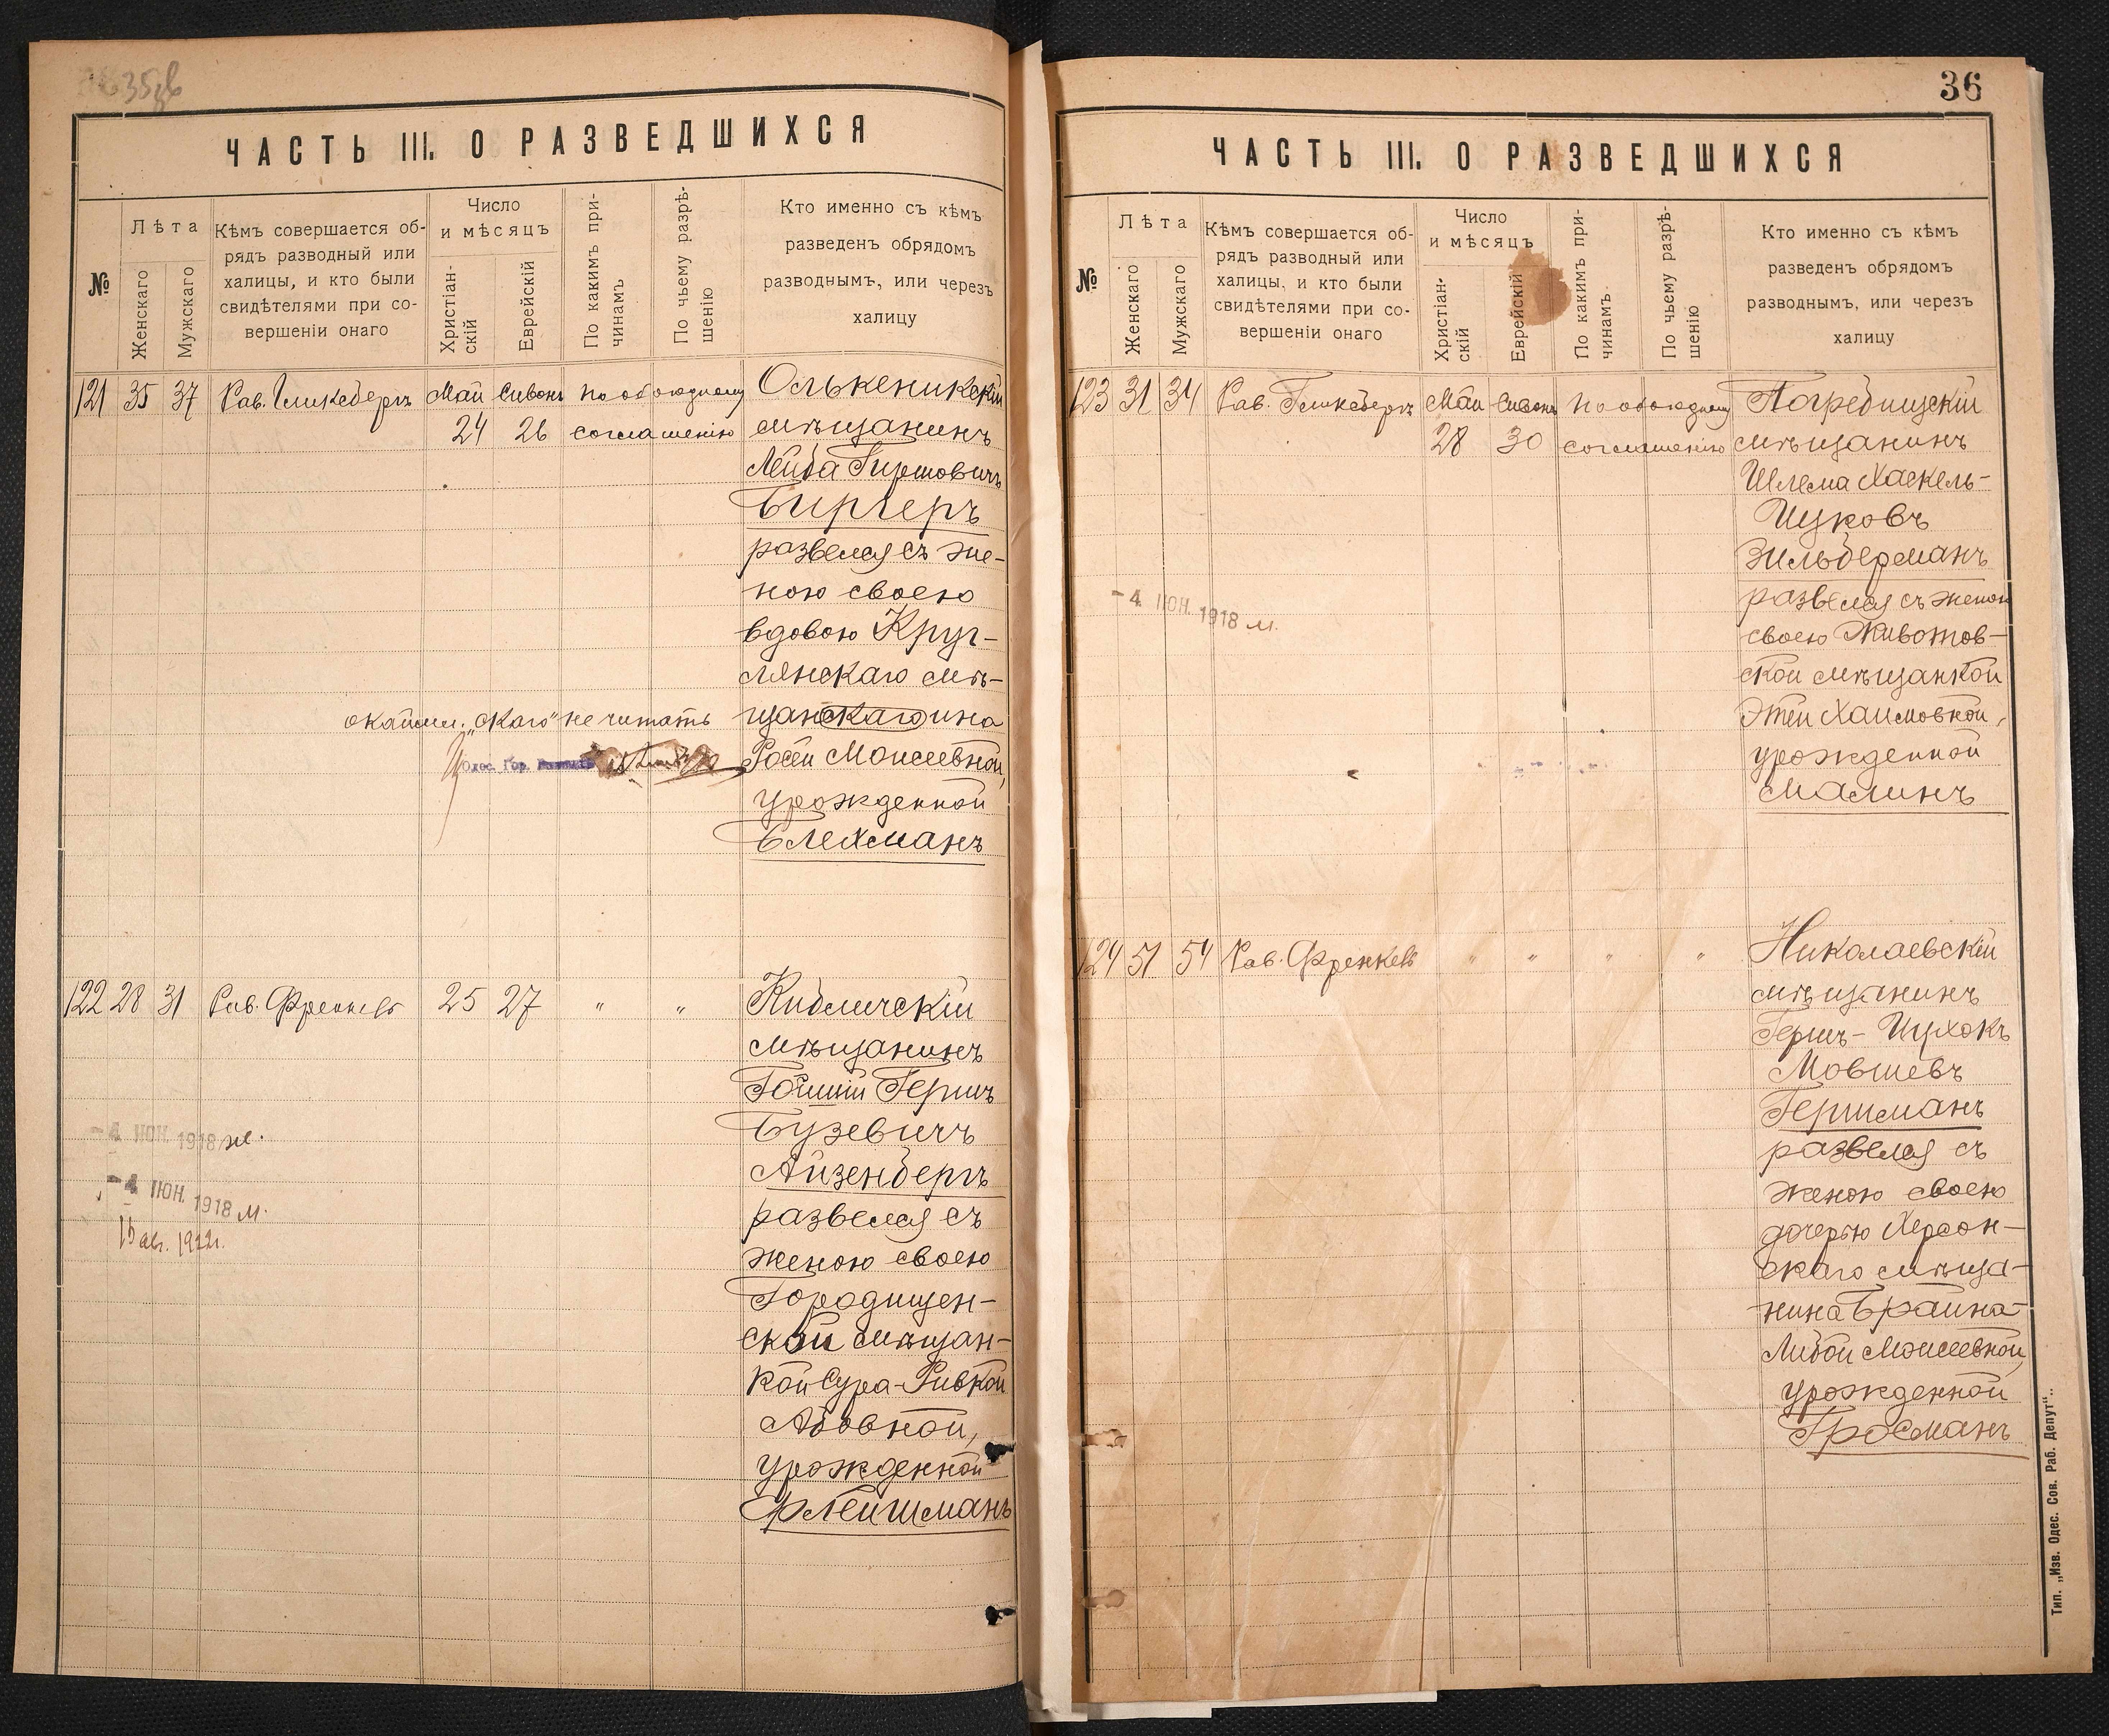 ЧАСТЬ III. О РАЗВЕДШИХСЯ
№
Лѣта
Женскаго
Мужскаго
Кѣмъ совершается об-
рядъ разводный или
халицы, и кто были
свидѣтелями при со-
вершеніи онаго
Число
и мѣсяцъ
Христіан-
скій
Еврейскій
По какимъ при-
чинамъ
По чьему разрѣ-
шенію
Кто именно съ кѣмъ
разведенъ обрядомъ
разводнымъ, или черезъ
халицу
121 35 37 Рав. Гликсбергъ Май Сивонъ по обоюдному Олькеникскій
24 26 соглашенію мѣщанинъ
Лейба Гиршовичъ
Биргеръ
развелся съ же-
ною своею
вдовою Круг-
лянскаго мѣ-
окаймл. „скаго" не читать щанскагоина
Одес. Гор. Росей Моисеевной,
урожденной
Блехманъ
122 28 31 Рав. Френкель 25 27 " " Кибличскій
мѣщанинъ
Гершъ
Бузевичъ
Айзенбергъ
развелся съ
женою своею
Городищен-
ской мѣщан-
кой Сура-Ривкой
Абовной,
урожденной
Флейшманъ
-4 ІЮН. 1918 ж.
-4 ІЮН. 1918 м.
авг. 1922г.
36
ЧАСТЬ III. О РАЗВЕДШИХСЯ
№
Лѣта
Женскаго
Мужскаго
Кѣмъ совершается об-
рядъ разводный или
халицы, и кто были
свидѣтелями при со-
вершеніи онаго
Число
и мѣсяцъ
Христіан-
скій
Еврейскій
По какимъ при-
чинамъ
По чьему разрѣ-
шенію
Кто именно съ кѣмъ
разведенъ обрядомъ
разводнымъ, или черезъ
халицу
123 31 34 Рав. Гликсбергъ Май Сивонъ по обоюдному Погребищскій
28 30 соглашенію мѣщанинъ
Шлема Хаскель-
Ицковъ
Зильберманъ
развелся съ женою
своею Животов-
ской мѣщанкой
Этей Хаимовной,
урожденной
Малинъ
-4 ІЮН. 1918 м.
124 51 54 Рав. Френкель " " " " Николаевскій
мѣщанинъ
Гершъ-Ицхокъ
Мовшевъ
Гершманъ
развелся съ
женою своею
дочерью Херсон-
скаго мѣща-
нина Брайна-
Либой Моисеевной,
урожденной
Гросманъ
Тип. „Изв. Одес. Сов. Раб. Депут".